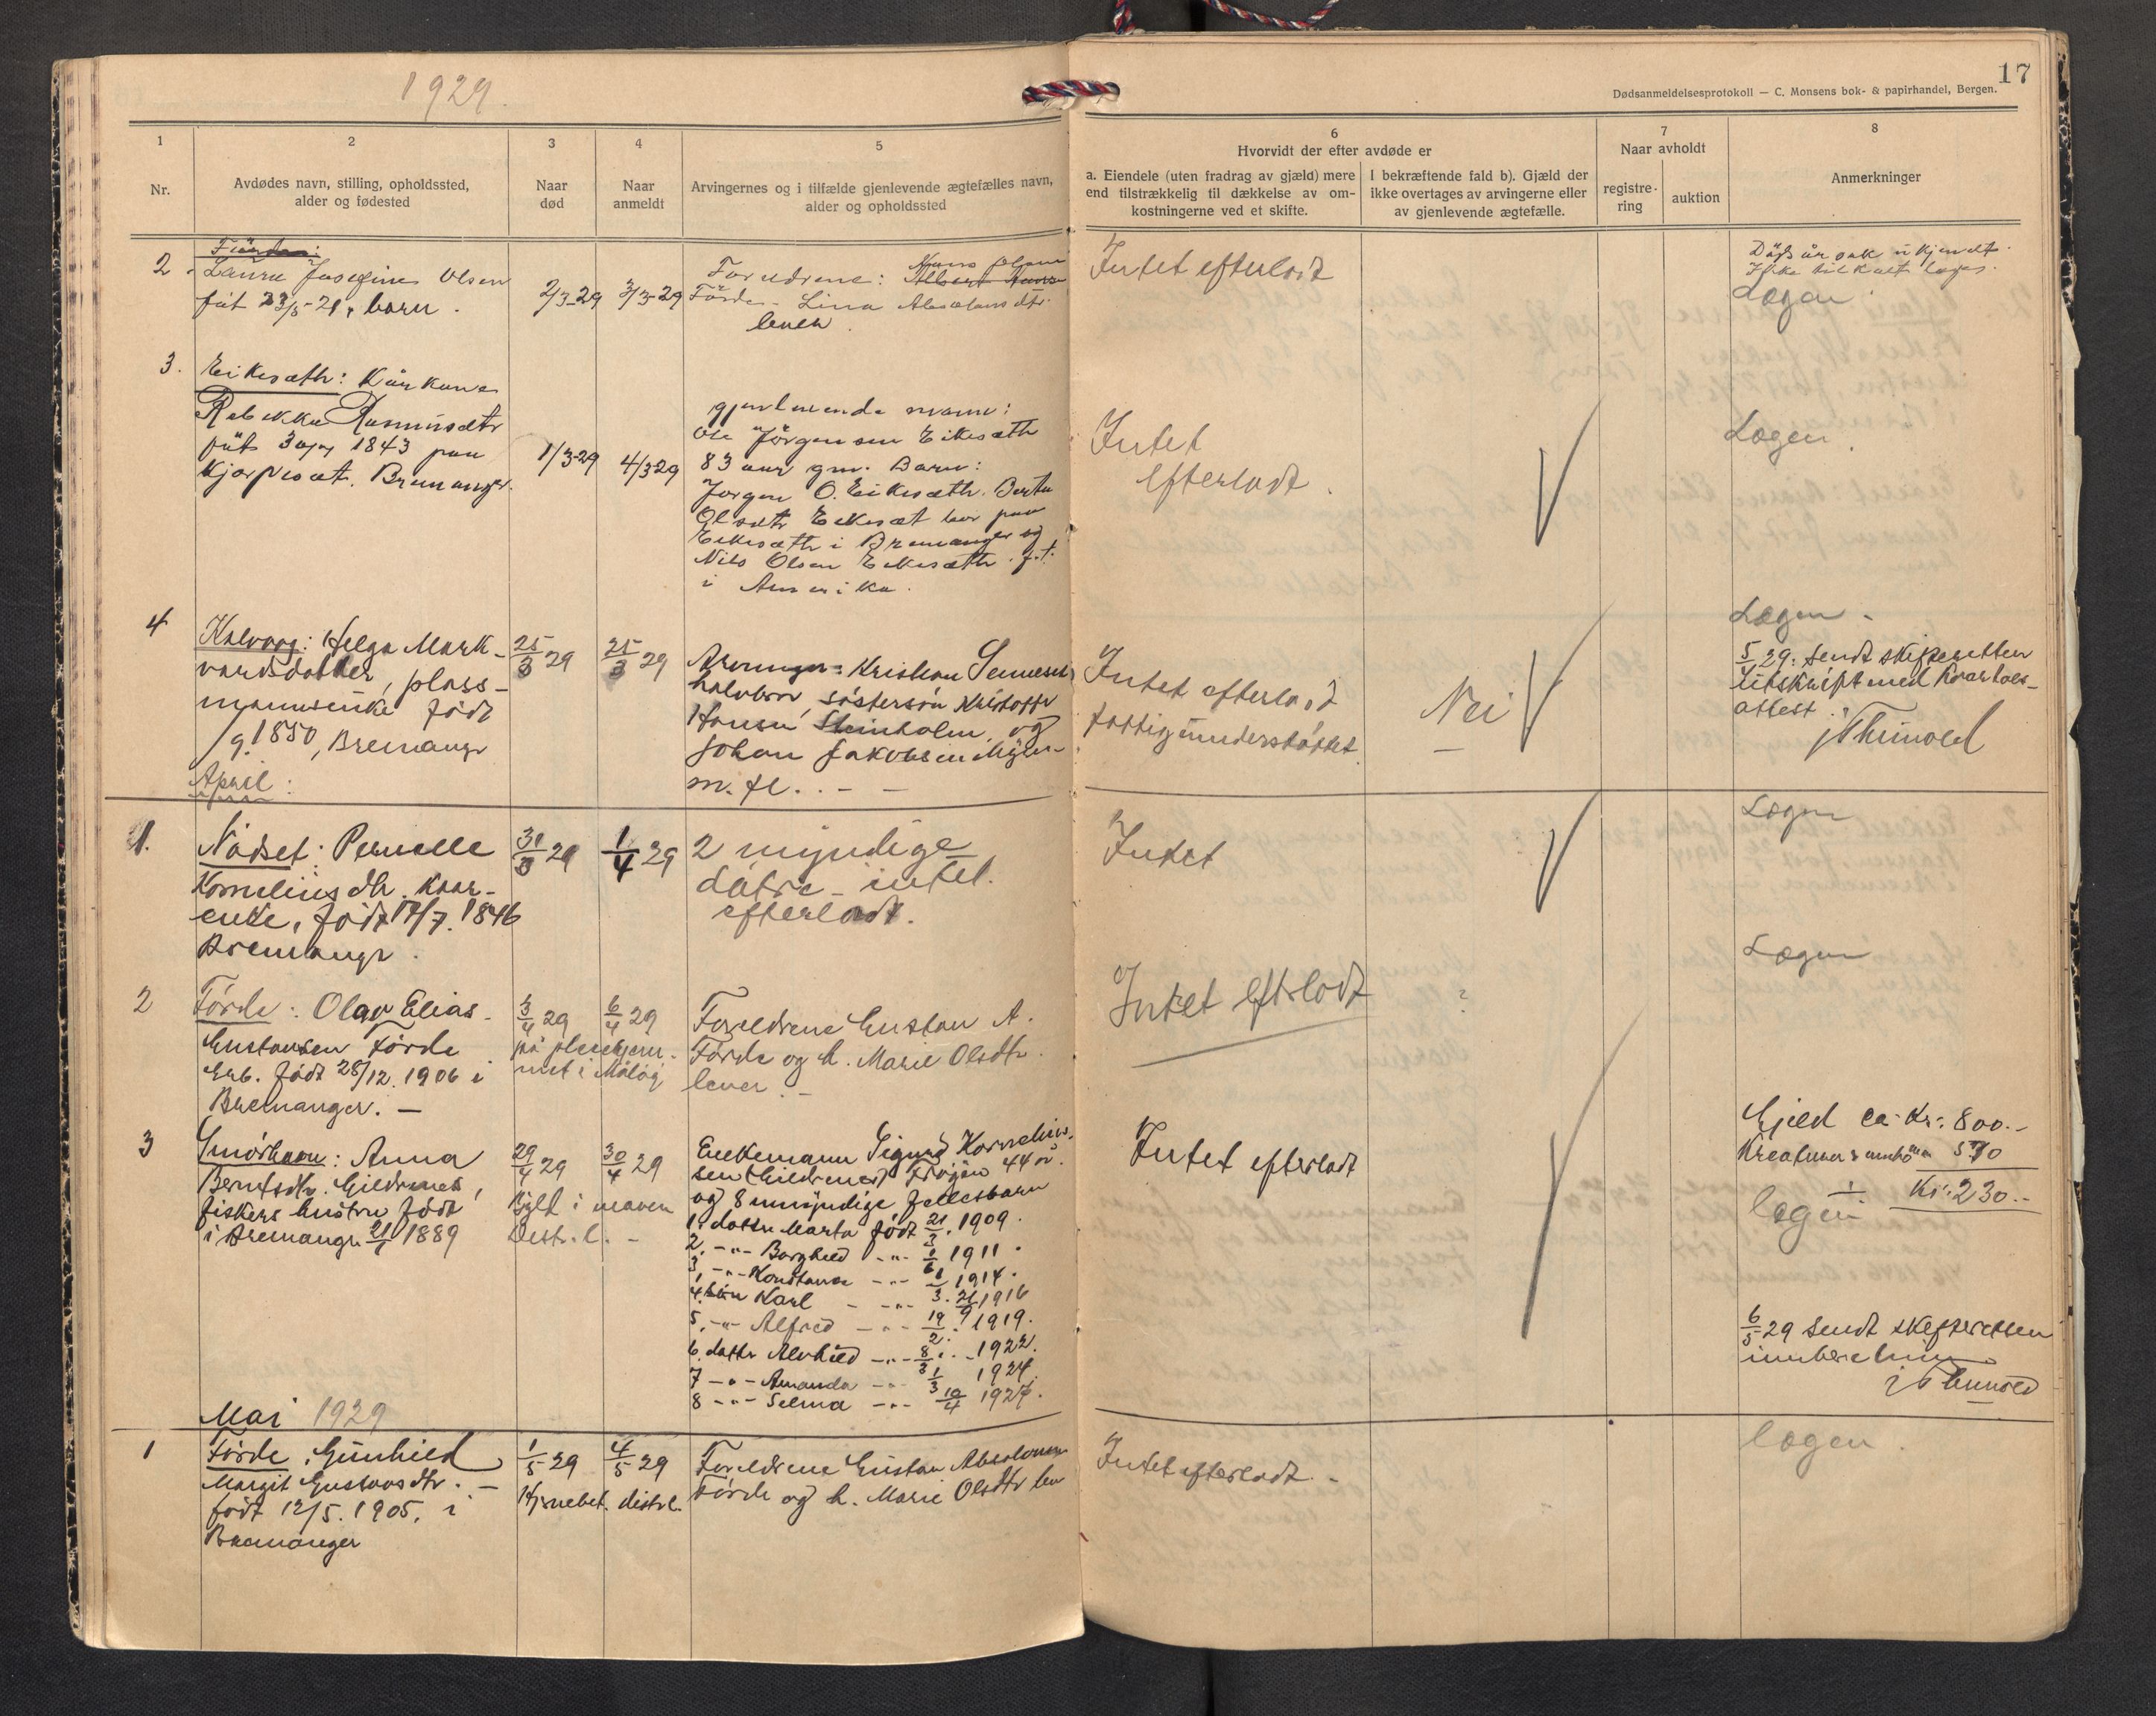 1929.
17
Dødsanmeldelsesprotokoll — C. Monsens bok- & papirhandel, Bergen.
1
Nr.
2
Avdødes navn, stilling, opholdssted,
alder og fødested
3
Naar
død
4
Naar
anmeldt
5
Arvingernes og i tilfælde gjenlevende ægtefælles navn,
alder og opholdssted
6
Hvorvidt der efter avdøde er
a. Eiendele (uten fradrag av gjæld) mere
end tilstrækkelig til dækkelse av om-
kostningerne ved et skifte.
I bekræftende fald b). Gjæld der
ikke overtages av arvingerne eller
av gjenlevende ægtefælle.
7
Naar avholdt
registre-
ring
auktion
8
Anmerkninger
2
Laura Josefine Olsen
født 23/5-21, barn.
2/3-29
3/3-29
Foreldrene: Hans Olsen
Förde - Lina Absolonsdtr.
lever.
Intet efterlodt
Døds år sak ukjendt.
Ikke tilkalt læge.
Lægen.
3.
Eikesæth: Kårkone
Rebekka Rasmusdtr
født 1843 paa
Bremanger.
1/3-29
4/3-29
gjenlevende mann:
Ole Jörgensen Eikesæth
83 aar gm. Barn:
Jorgen O. Eikesæth. Berta
Olsdtr Eikesæt bor paa
Eikesæth i Bremanger og
Nils Olsen Eikesæth f.t.
i Amerika.
Intet
efterlodt.
Lægen.
4
Kalvaag: Helga Mark-
vardsdotter, plass-
mannsenke født
/9. 1850, Bremangr
25/3 29
25/3 29
Arvinger: Kristian
halvbror, söstersön Kristoffer
Hansen Steinholm, og
Johan Jakobsen
m. fl. . - -
Intet efterlodt
fattigunderstöttet
Nei
Lægen -
5/4 29. Sendt skifteretten
utskrift med
attest.
April:
1.
Nödset: Pernelle
Korneliusdtr. kaar-
enke, født 17/7. 1846
Bremangr.
31/3 29
1/4 29
2 myndige
döttre - intet
efterlodt.
Intet
Lægen
2
Förde: Olav Elias-
Gustavsen Förde
født 28/12. 1906 i
Bremanger. —
3/4 29
6/4 29
på pleiehjem-
met i Måløy
Foreldrene Gustav A.
Förde og h. Marie Olsdtr.
lever. -
Intet efterlodt
?
Lægen
3
Smörhavn: Anna
Berntsdtr. Gildrenes,
fiskers hustru født
i Bremangr. 21/1 1889
29/4 29
30/4 29
Bylt i maven
Distr. l. -
Enkemann Sigurd Kornelius-
sen (Gildrenes) Fröyen 44 år.
og 8 umyndige fellesbarn
1. dotter Marta født 21/3. 1909.
2. -"- Borghild -"- 1911.
3. -"- Konstanse -"- 1914.
4. sön Karl - -"- 1916
5. -"- Alfred -"- 19/2. 1919.
6. dotter Alvhild -"- 8/3. 1922.
7 -"- Amanda -"- 1/3 1924.
8 -"- Selma -"- 10/4 1927.
Intet efterladt
Gjeld ca. Kr. 800.-
570
Kr. 230.-
lægen
6/5 29 Sendt skifteretten
innberetning
Mai 1929
1
Förde: Gunhild
Margit Gustavsdtr. -
født 12/5. 1905, i
Bremanger
1/5 29
4/5 29
Hjernebet. distr.l.
Foreldrene Gustav Absalonsen
Förde og h. Marie Olsdtr lev
Intet efterladt. -
lægen.